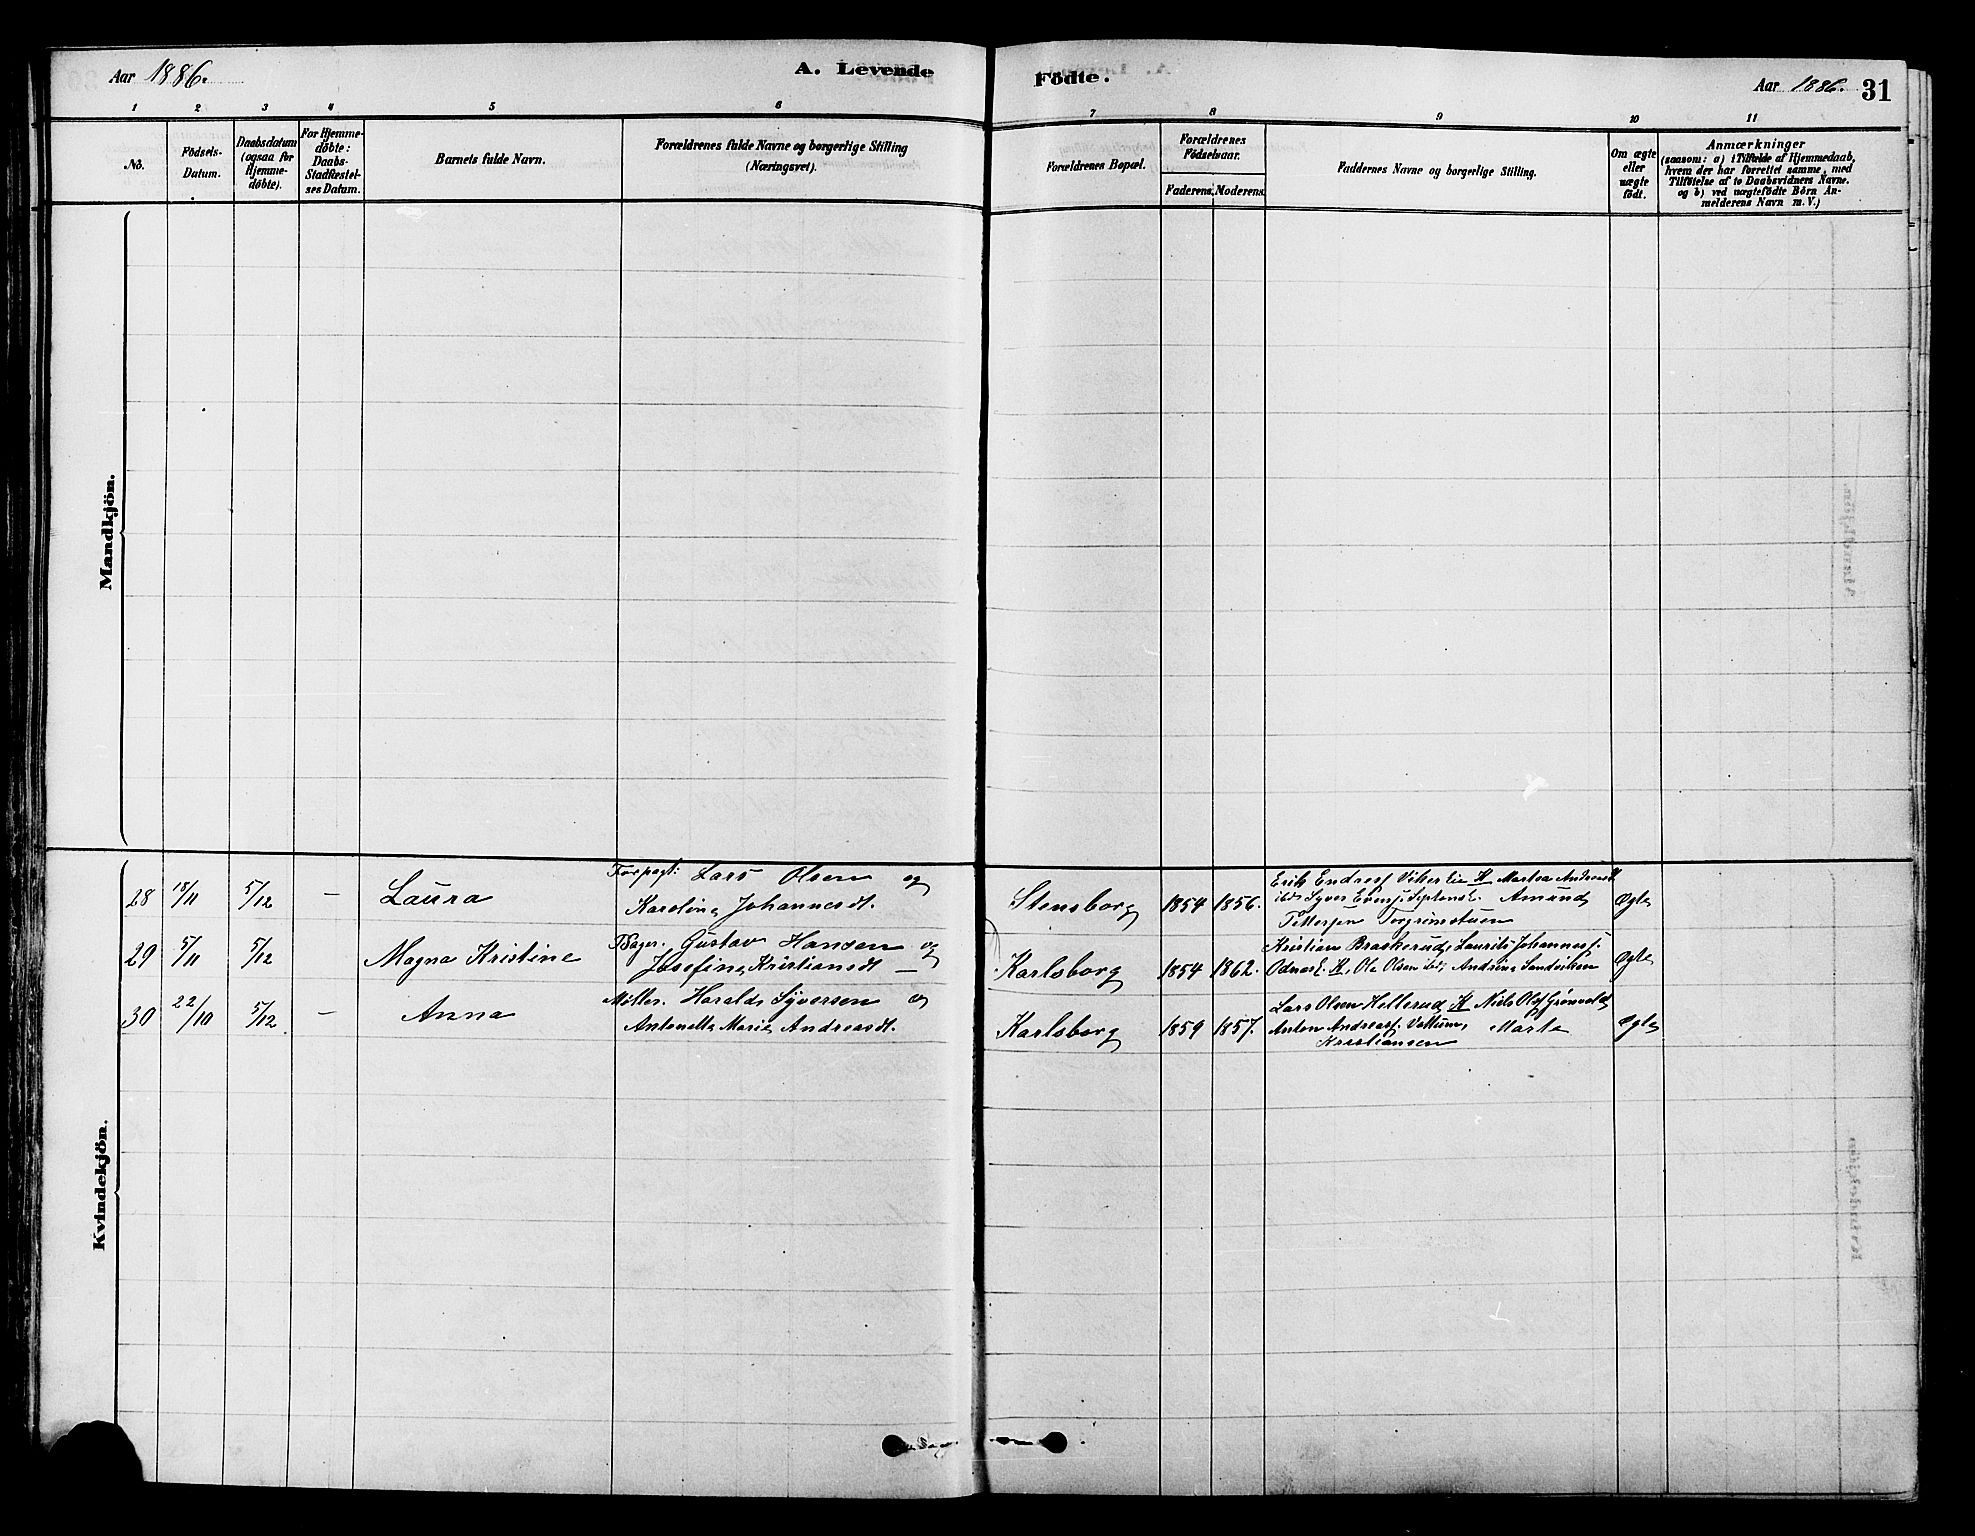 Aar 1886.
A. Levende
Fødte.
Aar 1886.
31
1 2 3 4 5 6 7 8 9 10 11
No.
Fødsels-
Datum.
Daabsdatum
(ogsaa for
Hjemme-
døbte).
For Hjemme-
døbte:
Daabs-
Stadfæstel-
ses Datum.
Barnets fulde Navn.
Forældrenes fulde Navne og borgerlige Stilling
(Næringsvei).
Forældrenes Bopæl.
Forældrenes
Fødselsaar.
Faderens. Moderens.
Faddernes Navne og borgerlige Stilling.
Om ægte
eller
uægte
født.
Anmærkninger
(saasom: a) i Tilfælde af Hjemmedaab,
hvem der har forrettet samme, med
Tilføielse af to Daabsvidners Navne.
og b) ved uægtefødte Børn An-
melderens Navn m. V.)
Mandkjön.
Kvindekjön.
28 18/11 5/12 — Laura
Forpagt: Lars Olsen og
Karoline Johannesdt.
Stensborg 1854 1856.
Erik Endress Vikerlie K Martea Andreasdt
Syver Evens. Amund
Pettersen Torgrimstuen
Ægte
29 5/11 5/12 Magna Kristine
Bager. Gustav Hansen og
Josefine Kristiansdt —
Karlsborg 1854 1862.
Kristian Braskerud, Laurits Johanness.
Odnes K, Ole Olsen ibd, Andrine Sandviken
Ægte
30 22/10 5/12 — Anna
Møller. Harald Syversen og
Antonette Marie Andreasdt.
Karlsborg 1859 1857.
Lars Olsen Hellerud K Niels Ols. Grønvold
Anton Andreass. Vottum, Marte
Kristiansen
Ægte